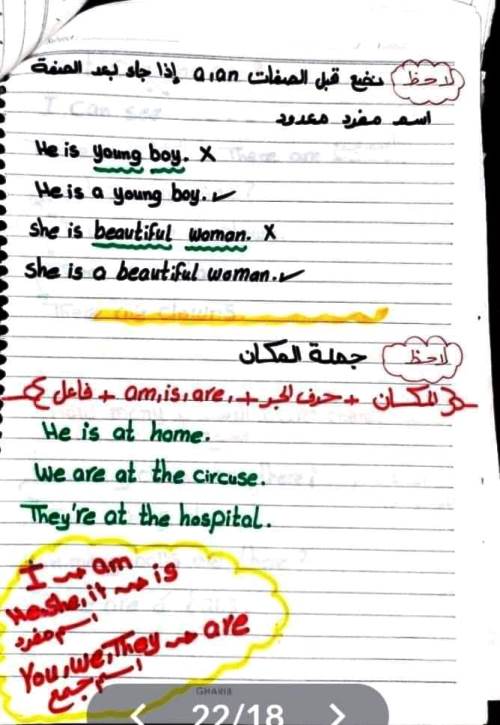 لاحظ نضع قبل الصفات a,an إذا جاء بعد الصفة
اسم مفرد معدود
He is young boy. X
He is a young boy. ✓
She is beautiful woman. X
She is a beautiful woman. ✓
لاحظ جملة المكان
فاعل + am, is, are, + حرف الجر + المكان
He is at home.
We are at the circuse.
They're at the hospital.
I → am
He, she, it → is
اسم مفرد
You, we, They → are
اسم جمع
GHARIB
22/18